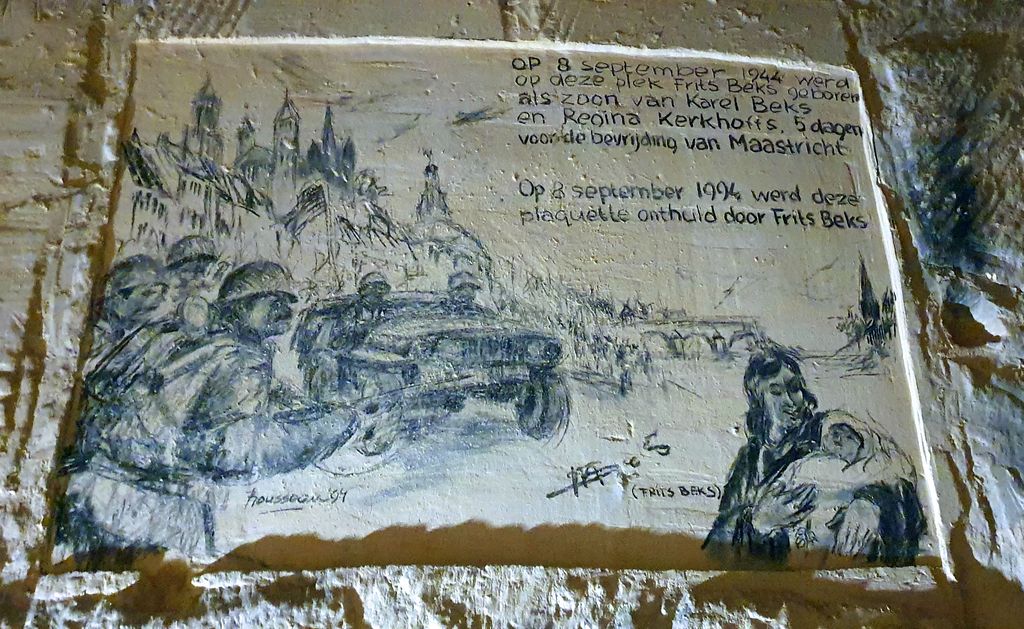 OP 8 september 1944 werd
op deze plek Frits Beks geboren
als zoon van Karel Beks
en Regina Kerkhoffs. 5 dagen
voor de bevrijding van Maastricht
Op 8 september 1994 werd deze
plaquette onthuld door Frits Beks
(FRITS BEKS)
Rousseau '94